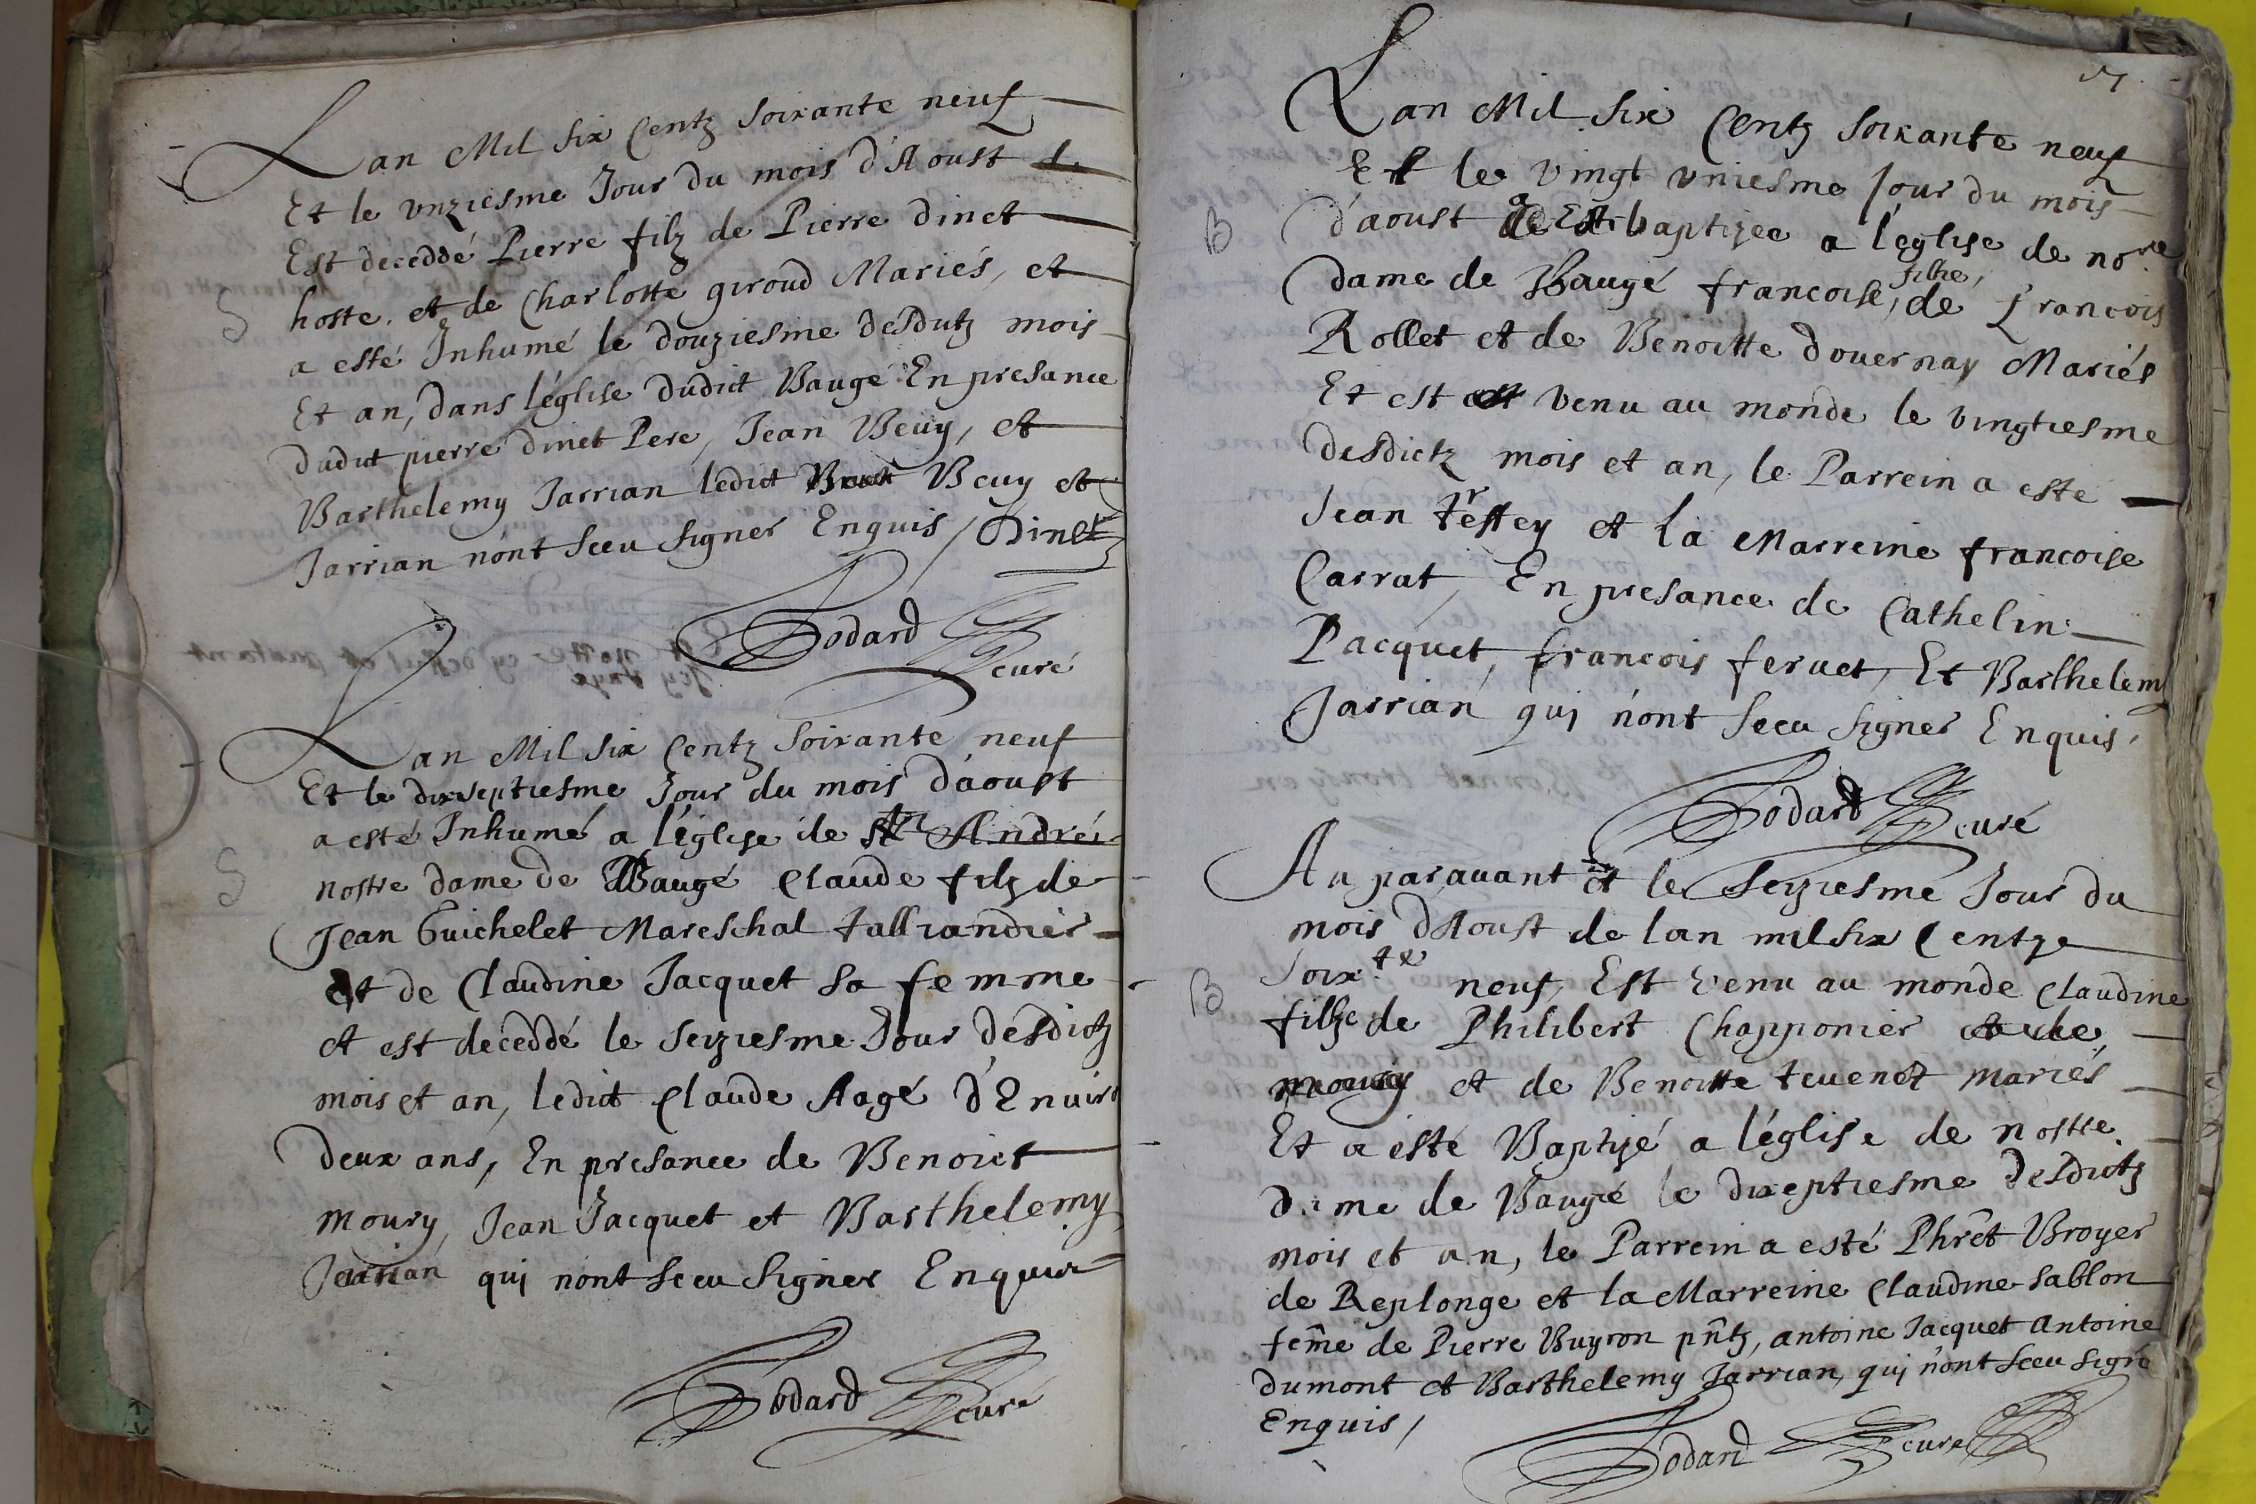 Lan Mil six Centz soixante neuf
Et le unziesme Jour du mois d'Aoust
Est deceddé Pierre filz de Pierre dinet
hoste, et de Charlotte giroud Mariés, et
S
a esté Inhumé le douziesme desdutz mois
Et an, dans l'église dudict Baugé En presance
dudut pierre dinet Pere, Jean Beuy, et
Barthelemy Jarrian ledict Beuy et
Jarrian n'ont sceu signer Enquis / Dinet
Bodard curé
Lan Mil six Centz soixante neuf
Et le dixseptiesme Jour du mois d'aoust
a esté Inhumé a l'église de St André
S
nostre dame de Baugé Claude filz de
Jean Guichelet Mareschal talliandier
et de Claudine Jacquet sa femme
et est deceddé le seiziesme Jour desdictz
mois et an, ledict Claude Aagé d'Enuiro
deux ans, En presance de Benoict
moury, Jean Jacquet et Barthelemy
Jarrian qui n'ont sceu signer Enquis
Bodard curé
Lan Mil six Centz soixante neuf
Et le vingt vniesme Jour du mois
B
d'aoust a Esté baptizee a l'eglise de nore
dame de Baugé francoise, fillie, de francois
Rollet et de Benoitte douernay Mariés
Et est venu au monde le vingtiesme
desdictz mois et an, le Parrein a esté
Jean teffey et la Marreine francoise
Carrat, En presance de Cathelin
Pacquet, francois feruet, Et Barthelemy
Jarrian qui n'ont sceu signer Enquis,
Bodard curé
Au parauant et le seiziesme Jour du
mois d'Aoust de lan mil six Centze
soix.te neuf, Est venu au monde Claudine
B
fillie de Philibert Chapponier
et de Benoitte teuenot mariés
Et a esté Baptizé a l'église de nostre
dame de Baugé le dixeptiesme desdictz
mois et an, le Parrein a esté Phret Broyer
de Replonge et la Marreine Claudine Sablon
feme de Pierre Buyron pntz, antoine Jacquet antoine
dumont et Barthelemy Jarrian, qui n'ont sceu signe
Enquis /
Bodard curé